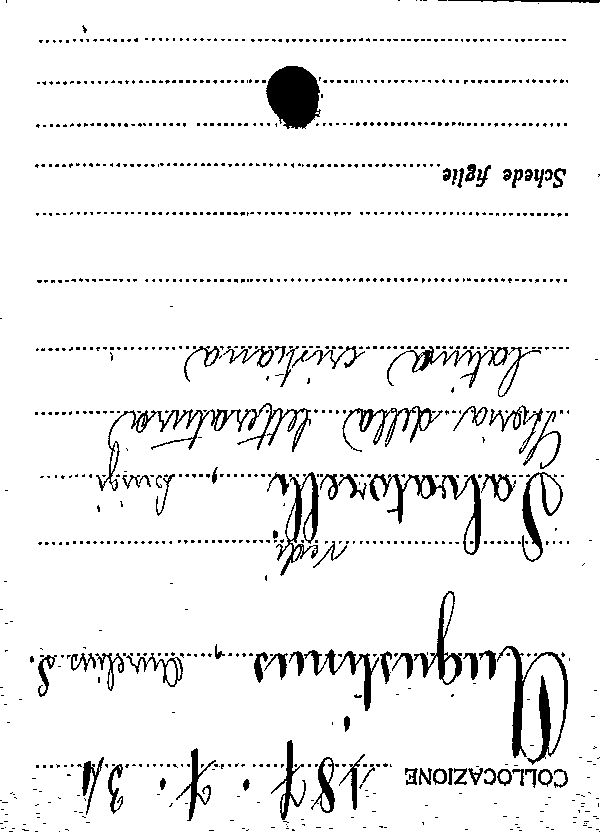 COLLOCAZIONE 187. 7. 3/1
Augustinus, Aurelius S.
vedi
Salvatorelli, Luigi
Storia della letteratura
latina cristiana
Schede figlie